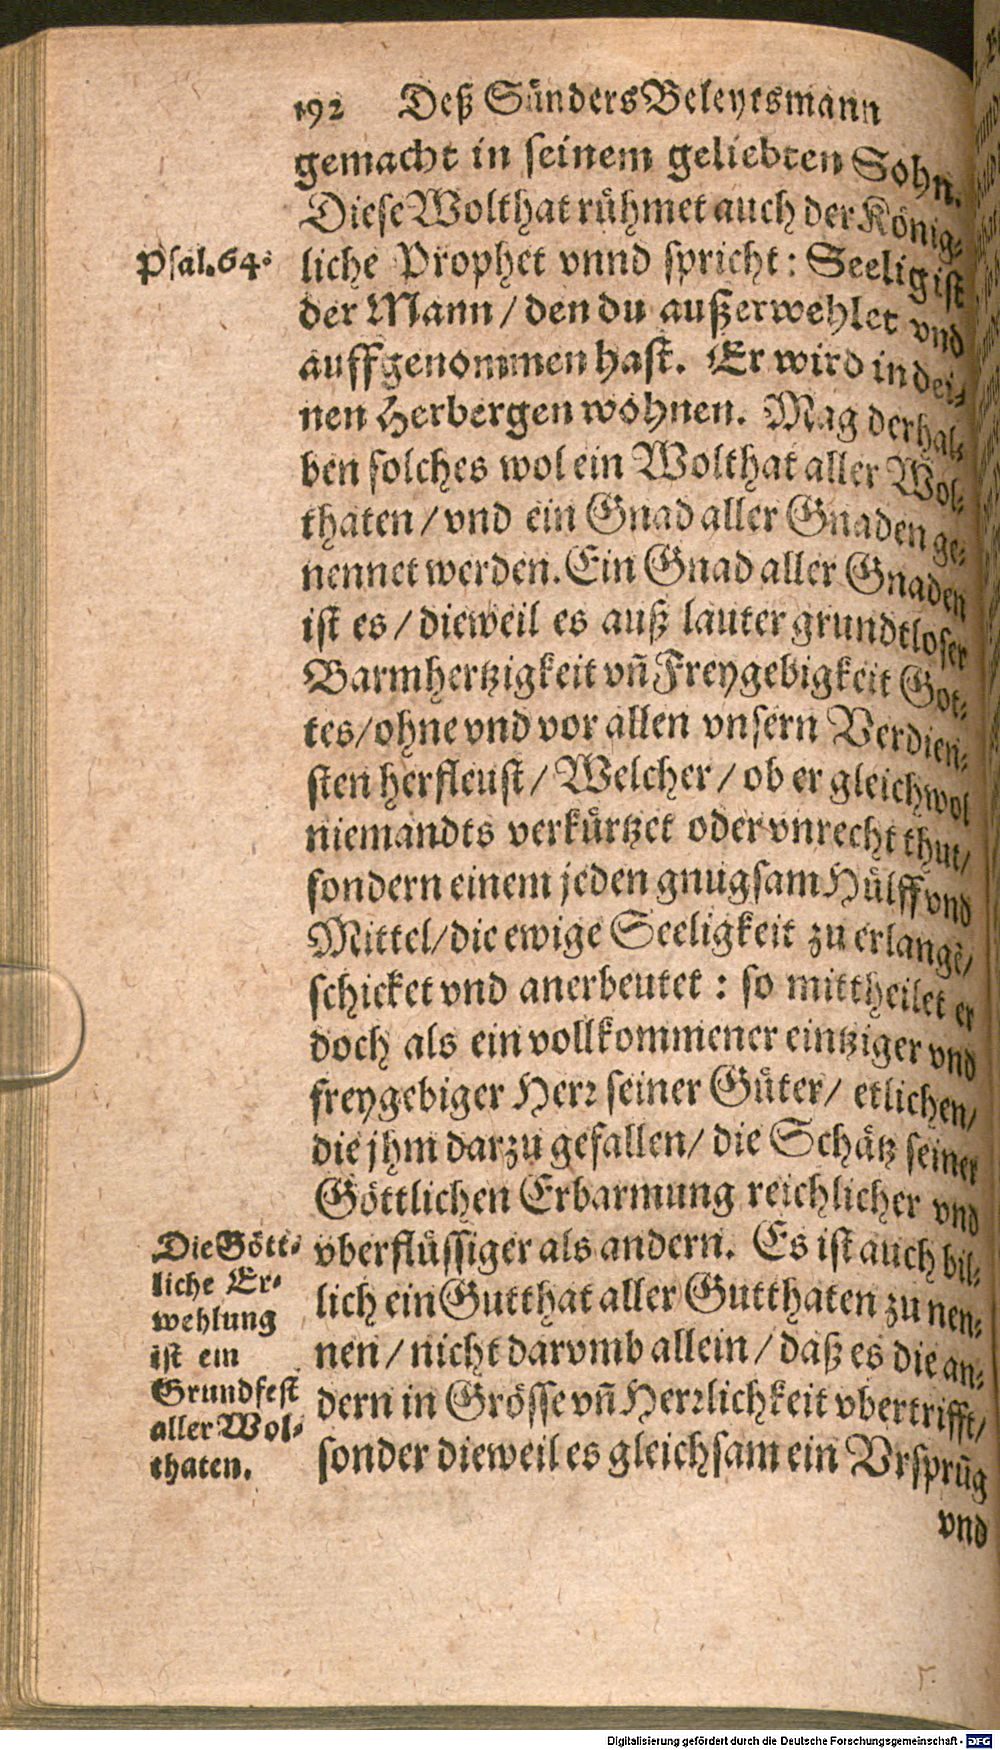 192 Deß Sünders Beleytsmann
gemacht in seinem geliebten Sohn.
Diese Wolthat rühmet auch der König-
Psal. 64.
liche Prophet vnnd spricht: Seelig ist
der Mann / den du außerwehlet vnd
auffgenommen hast. Er wird in dei-
nen Herbergen wohnen. Mag derhal-
ben solches wol ein Wolthat aller Wol-
thaten / vnd ein Gnad aller Gnaden ge-
nennet werden. Ein Gnad aller Gnaden
ist es / dieweil es auß lauter grundtloser
Barmhertzigkeit vñ Freygebigkeit Got-
tes / ohne vnd vor allen vnsern Verdien-
sten herfleust / Welcher / ob er gleichwol
niemandts verkürtzet oder vnrecht thut /
sondern einem jeden gnugsam Hülff vnd
Mittel / die ewige Seeligkeit zu erlangē /
schicket vnd anerbeutet : so mittheilet er
doch als ein vollkommener eintziger vnd
freygebiger Herr seiner Güter / etlichen /
die jhm darzu gefallen / die Schätz seiner
Göttlichen Erbarmung reichlicher vnd
vberflüssiger als andern. Es ist auch bil-
lich ein Gutthat aller Gutthaten zu nen-
nen / nicht darvmb allein / daß es die an-
dern in Grösse vñ Herrlichkeit vbertrifft /
sonder dieweil es gleichsam ein Vrsprūg
vnd
Die Gött-
liche Er-
wehlung
ist ein
Grundfest
aller Wol-
thaten.
Digitalisierung gefördert durch die Deutsche Forschungsgemeinschaft - DFG